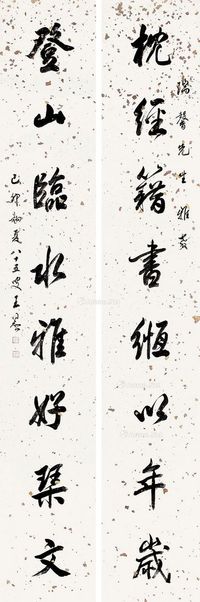 瑞馨先生雅教
枕經籍書緪以年歲
登山臨水雅好琹文
己卯初夏八十五叟王